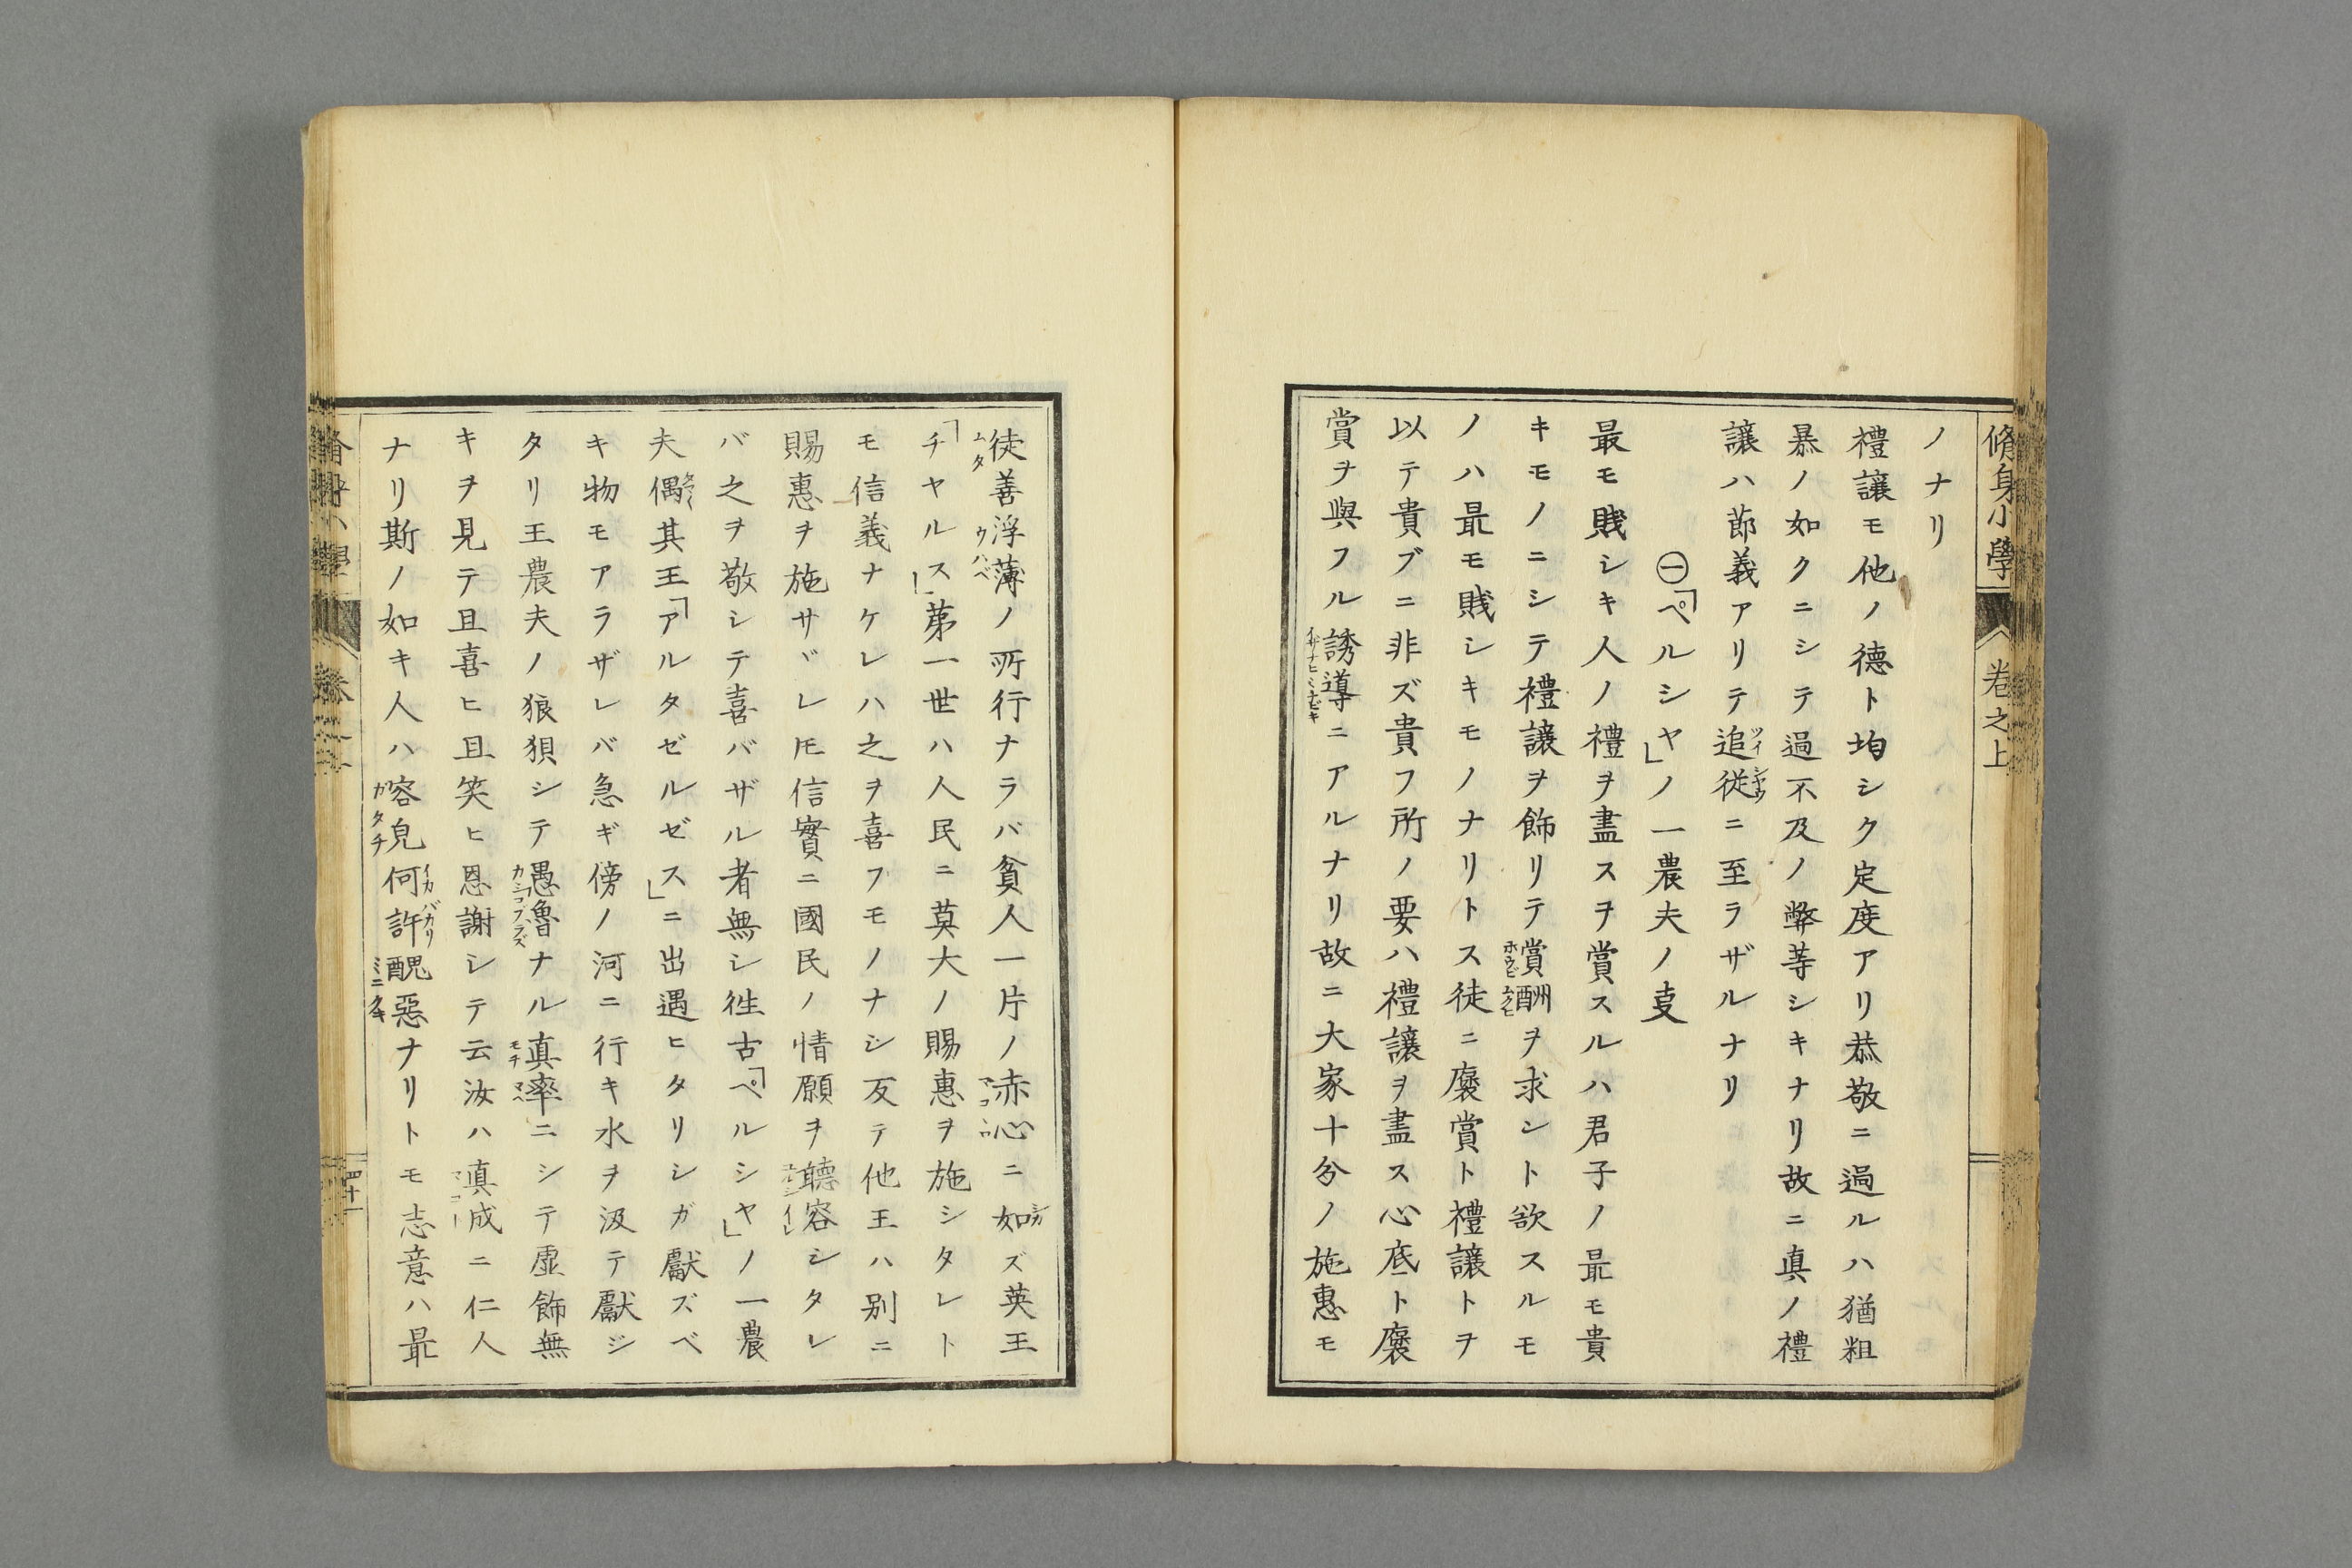 脩身小學
卷之上
ノナリ
禮讓モ他ノ德ト均シク定度アリ恭敬ニ過ルハ猶粗
暴ノ如クニシテ過不及ノ弊等シキナリ故ニ真ノ禮
讓ハ節義アリテ追從ニ至ラザルナリ
㊀「ペルシヤ」ノ一農夫ノ叓
最モ賤シキ人ノ禮ヲ盡スヲ賞スルハ君子ノ最モ貴
キモノニシテ禮讓ヲ飾リテ賞酬ヲ求ント欲スルモ
ノハ最モ賤シキモノナリトス徒ニ褒賞ト禮讓トヲ
以テ貴ブニ非ズ貴フ所ノ要ハ禮讓ヲ盡ス心底ト褒
賞ヲ與フル誘導ニアルナリ故ニ大家十分ノ施惠モ
徒善浮薄ノ所行ナラバ貧人一片ノ赤心ニ如ズ英王
「チヤルス」第一世ハ人民ニ莫大ノ賜惠ヲ施シタレト
モ信義ナケレハ之ヲ喜フモノナシ反テ他王ハ別ニ
賜惠ヲ施サヾレ𪜈信實ニ國民ノ情願ヲ聽容シタレ
バ之ヲ敬シテ喜バザル者無シ徃古「ペルシヤ」ノ一農
夫偶其王「アルタゼルゼス」ニ出遇ヒタリシガ獻ズベ
キ物モアラザレバ急ギ傍ノ河ニ行キ水ヲ汲テ獻ジ
タリ王農夫ノ狼狽シテ愚魯ナル真率ニシテ虛飾無
キヲ見テ且喜ヒ且笑ヒ恩謝シテ云汝ハ真成ニ仁人
ナリ斯ノ如キ人ハ容皃何許醜惡ナリトモ志意ハ最
四十一